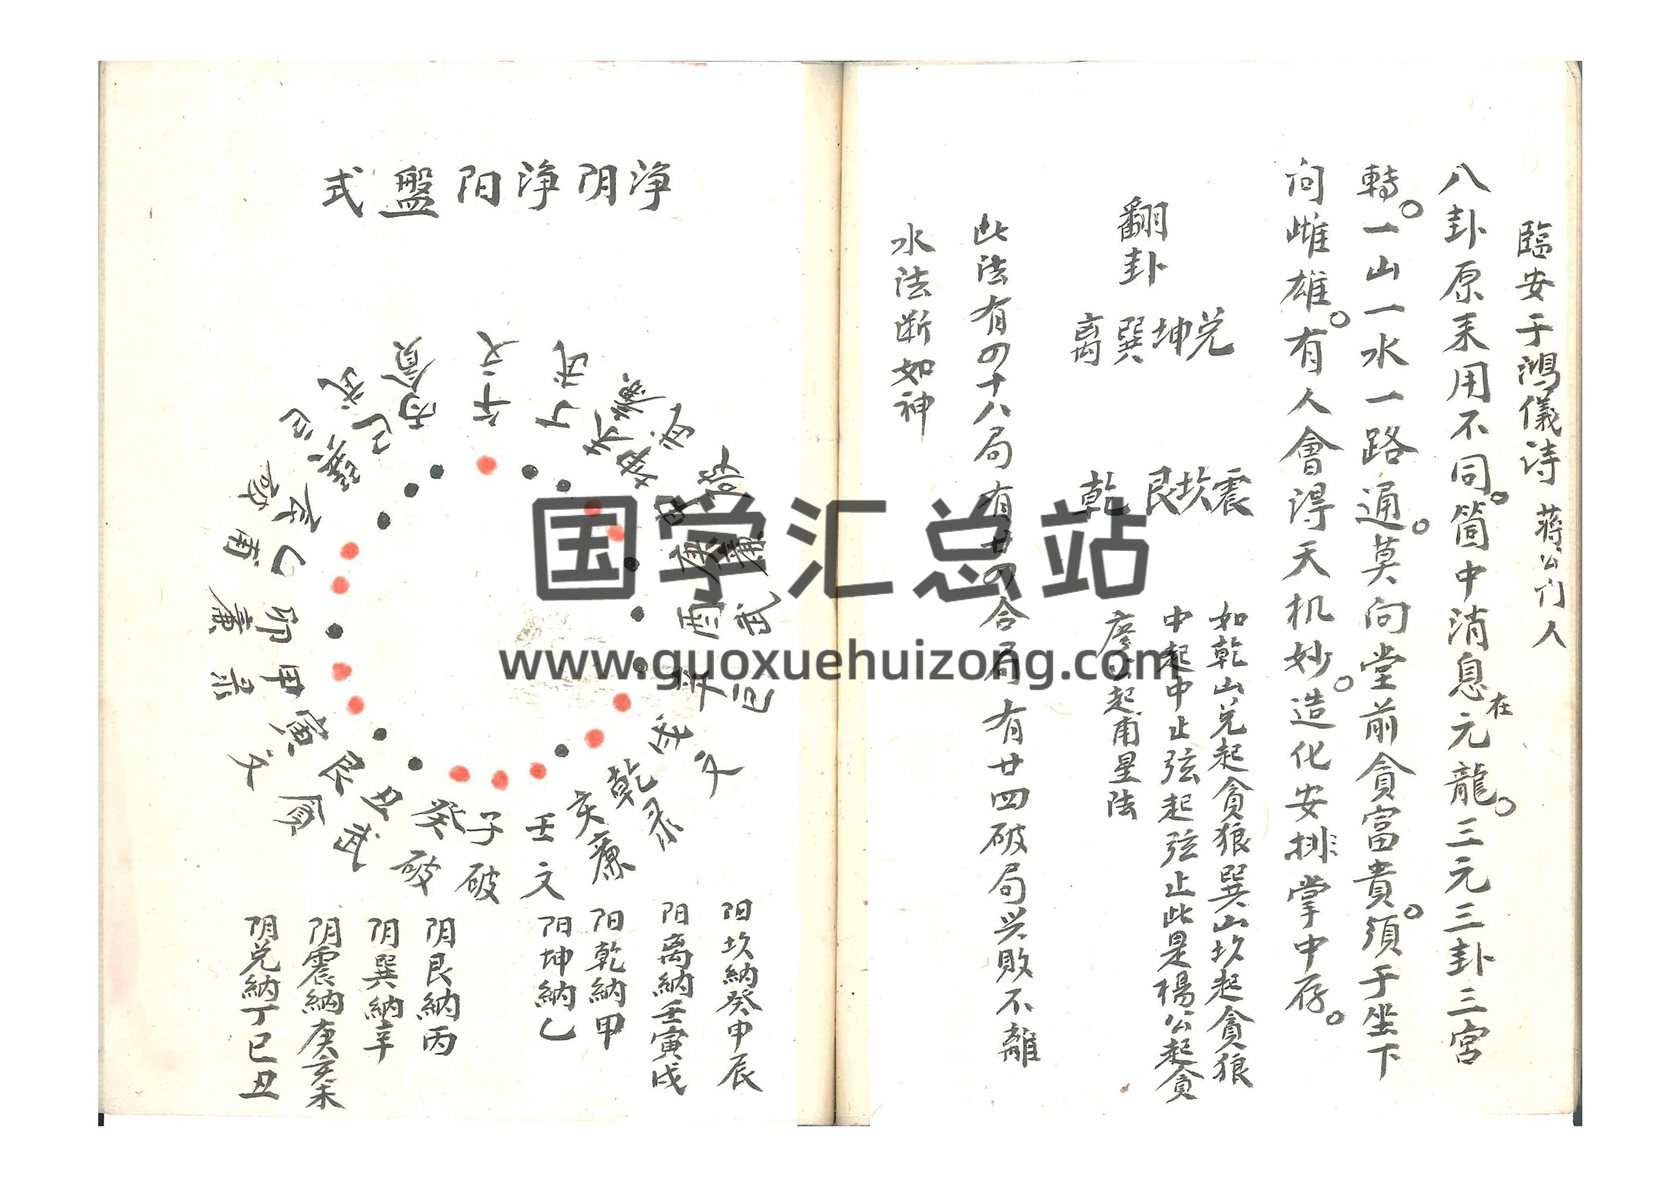 臨安于鴻儀诗 蒋公门人
八卦原来用不同。箇中消息在元龍。三元三卦三宮
轉。一山一水一路通。莫向堂前貪富貴。須于坐下
问雌雄。有人會得天机妙。造化安排掌中存。
翻卦
兑坤巽离
震坎艮乾
如乾山兑起貪狼巽山坎起貪狼
中起中止弦起弦止此是楊公起貪
起甫星法
此法有四十八局有廿四合局有廿四破局兴敗不離
水法断如神
净阴净阳盤式
午文
丁武
未廉
酉武
辛
乾
亥廉
壬文
子破
癸破
丑武
艮貪
寅文
甲录
卯廉
乙甫
辰破
巽巨
巳武
丙貪
阳坎納癸申辰
阳离納壬寅戌
阳乾納甲
阳坤納乙
阴艮納丙
阴巽納辛
阴震納庚亥未
阴兑納丁巳丑
国学汇总站
www.guoxuehuizong.com